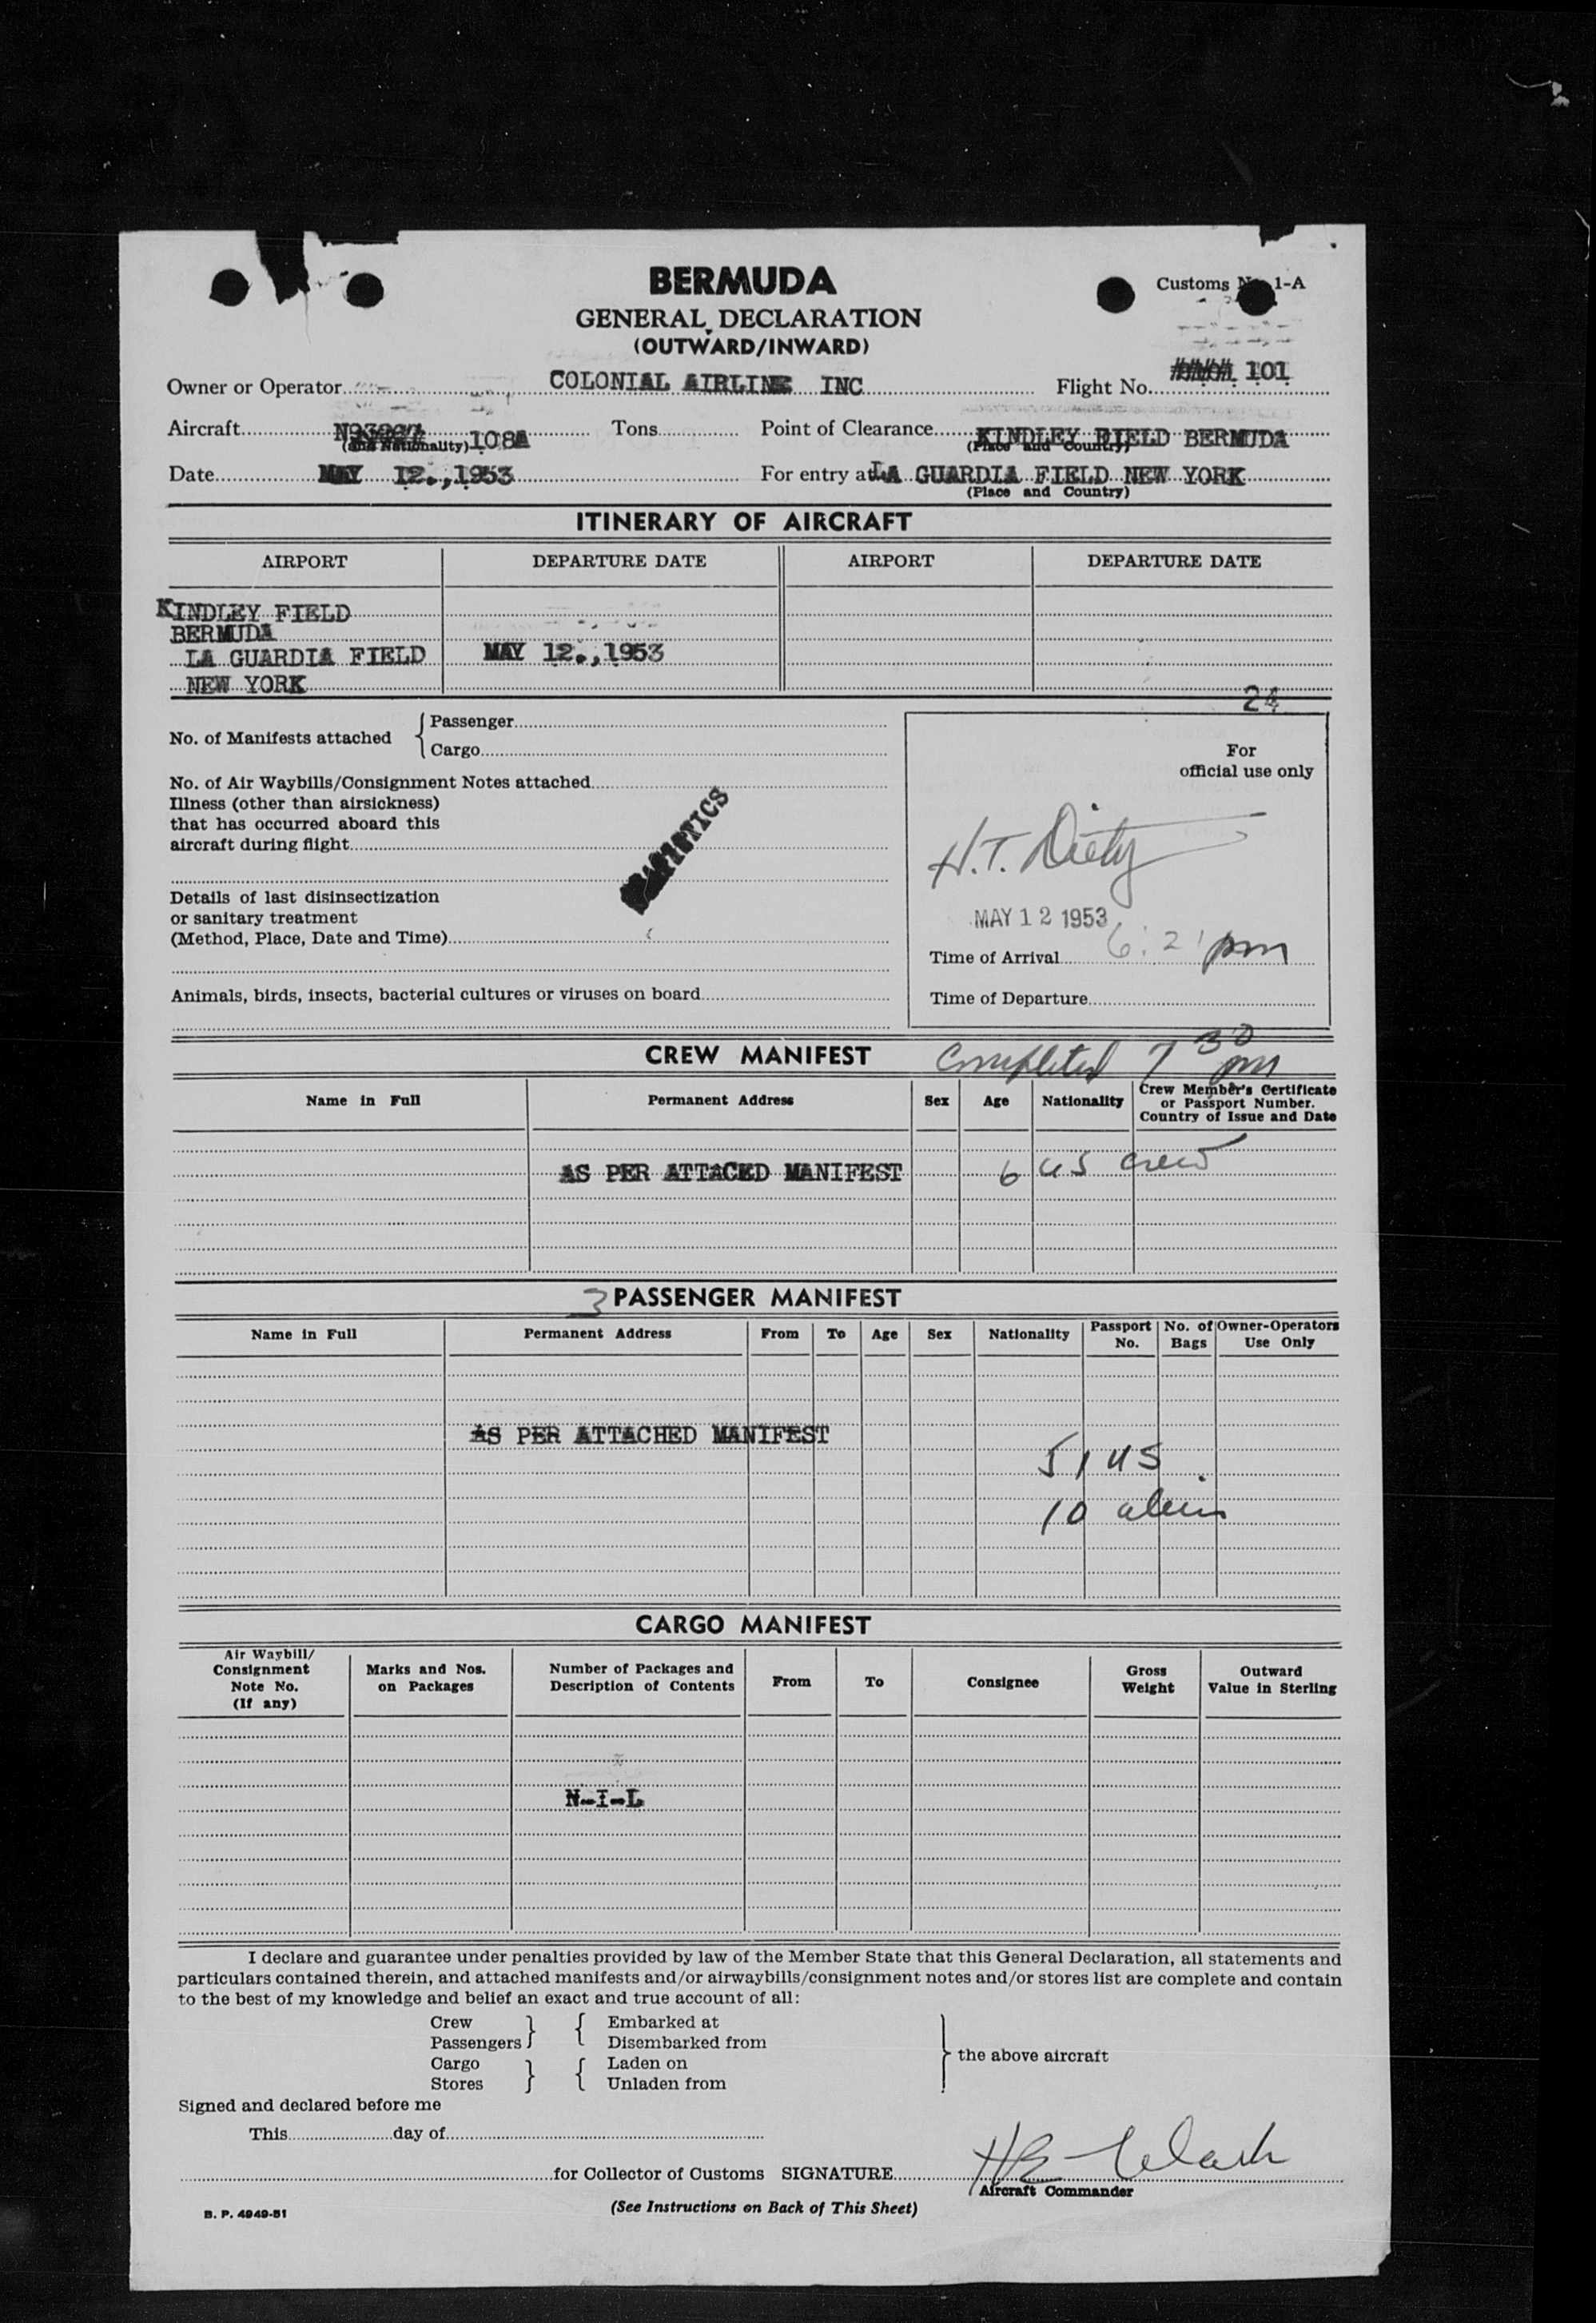 BERMUDA
Customs 1-A
GENERAL DECLARATION
(OUTWARD/INWARD)
Owner or Operator COLONIAL AIRLINE INC Flight No. 101
Aircraft 108A Tons Point of Clearance KINDLEY FIELD BERMUDA
(and Nationality) (Place and Country)
Date MAY 12.,1953 For entry at LA GUARDIA FIELD NEW YORK
(Place and Country)
ITINERARY OF AIRCRAFT
AIRPORT DEPARTURE DATE AIRPORT DEPARTURE DATE
KINDLEY FIELD
BERMUDA
LA GUARDIA FIELD MAY 12.,1953
NEW YORK
24
No. of Manifests attached { Passenger
Cargo
For
official use only
No. of Air Waybills/Consignment Notes attached
Illness (other than airsickness)
that has occurred aboard this
aircraft during flight
H.T. Dietz
Details of last disinsectization
or sanitary treatment
(Method, Place, Date and Time)
MAY 12 1953
Time of Arrival 6:21 pm
Animals, birds, insects, bacterial cultures or viruses on board
Time of Departure
CREW MANIFEST Completed 7 30 pm
Name in Full Permanent Address Sex Age Nationality Crew Member's Certificate
or Passport Number.
Country of Issue and Date
AS PER ATTACED MANIFEST 6 US crew
3 PASSENGER MANIFEST
Name in Full Permanent Address From To Age Sex Nationality Passport No. No. of Bags Owner-Operators Use Only
AS PER ATTACHED MANIFEST
51 US
10 alien
CARGO MANIFEST
Air Waybill/
Consignment
Note No.
(If any)
Marks and Nos.
on Packages
Number of Packages and
Description of Contents
From To Consignee
Gross
Weight
Outward
Value in Sterling
N-I-L
I declare and guarantee under penalties provided by law of the Member State that this General Declaration, all statements and
particulars contained therein, and attached manifests and/or airwaybills/consignment notes and/or stores list are complete and contain
to the best of my knowledge and belief an exact and true account of all:
Crew } { Embarked at
Passengers Disembarked from
Cargo } { Laden on
Stores Unladen from
} the above aircraft
Signed and declared before me
This day of
for Collector of Customs SIGNATURE
Aircraft Commander
(See Instructions on Back of This Sheet)
B. P. 4949-51